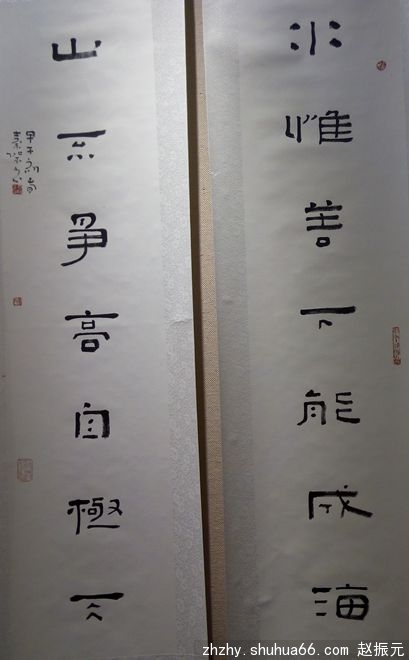 水惟善下能成海
山不争高自極天
甲午
zhzhy.shuhua66.com 赵振元